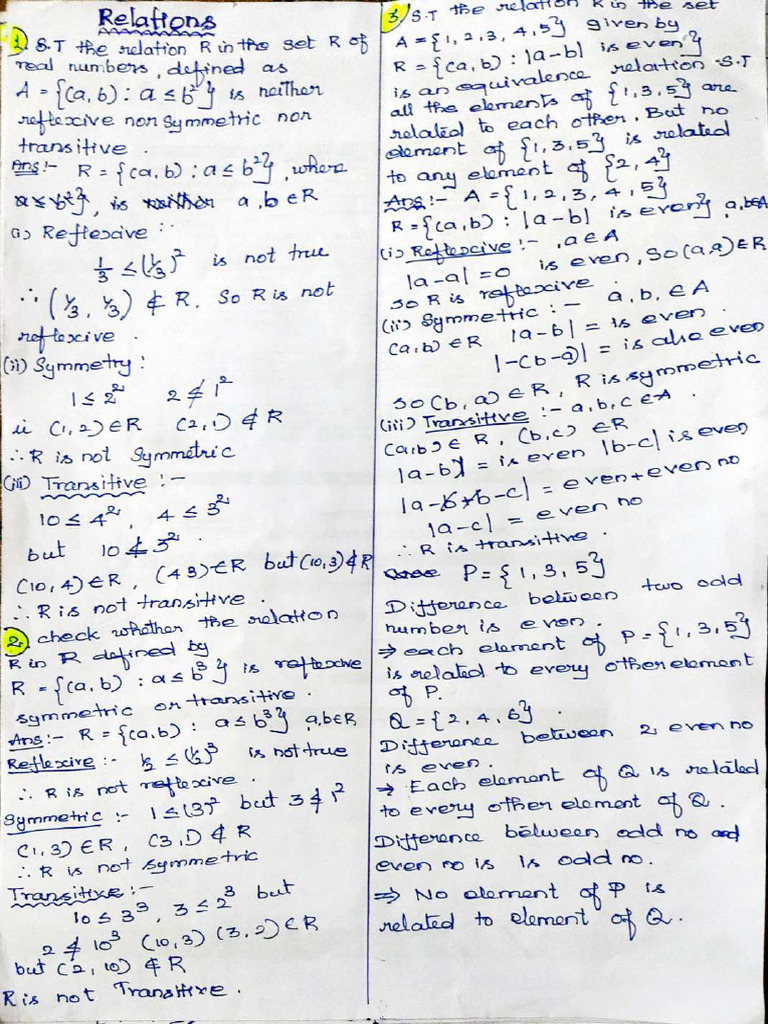 Relations
1) S.T the relation R in the set R of
real numbers, defined as
A = {(a,b) : a ≤ b²} is neither
reflexive nor symmetric nor
transitive.
Ans:- R = {(a,b) : a ≤ b²}, where
a ≤ b²}, is neither a,b ∈ R
(i) Reflexive :-
1/3 ≤ (1/3)² is not true
∴ (1/3, 1/3) ∉ R. So R is not
reflexive.
(ii) Symmetry :
1 ≤ 2² 2 ≰ 1²
ii (1,2) ∈ R (2,1) ∉ R
∴ R is not Symmetric
(iii) Transitive :-
10 ≤ 4², 4 ≤ 3²
but 10 ≰ 3².
(10,4) ∈ R, (4 3) ∈ R but (10,3) ∉ R
∴ R is not transitive.
2. check whether the relation
R in R defined by
R = {(a,b) : a ≤ b³} is reflexive
symmetric or transitive.
Ans:- R = {(a,b) : a ≤ b³} a,b ∈ R
Reflexive :- 1/2 ≤ (1/2)³ is not true
∴ R is not reflexive.
Symmetric :- 1 ≤ (3)² but 3 ≰ 1²
(1,3) ∈ R, (3,1) ∉ R
∴ R is not symmetric
Transitive :-
10 ≤ 3³, 3 ≤ 2³ but
2 ≰ 10³ (10,3) (3,2) ∈ R
but (2,10) ∉ R
R is not Transitive.
3) S.T the relation R in the set
A = {1,2,3,4,5} given by
R = {(a,b) : |a-b| is even}
is an equivalence relation. S.T
all the elements of {1,3,5} are
related to each other. But no
element of {1,3,5} is related
to any element of {2,4}
Ans:- A = {1,2,3,4,5}
R = {(a,b) : |a-b| is even} a,b∈A
(i) Reflexive :- , a ∈ A
|a-a| = 0 is even, So (a,a) ∈ R
so R is reflexive.
(ii) Symmetric :- a,b, ∈ A
(a,b) ∈ R |a-b| = is even.
|-(b-a)| = is also even
so (b,a) ∈ R, R is symmetric
(iii) Transitive :- a,b,c ∈ A.
(a,b) ∈ R, (b,c) ∈ R
|a-b| = is even |b-c| is even
|a-b+b-c| = even+even no
|a-c| = even no
∴ R is transitive.
P = {1,3,5}
Difference between two odd
number is even.
⇒ each element of P = {1,3,5}
is related to every other element
of P.
Q = {2,4,6}.
Difference between 2 even no
is even.
→ Each element of Q is related
to every other element of Q.
Difference between odd no and
even no is is odd no.
⇒ No element of P is
related to element of Q.